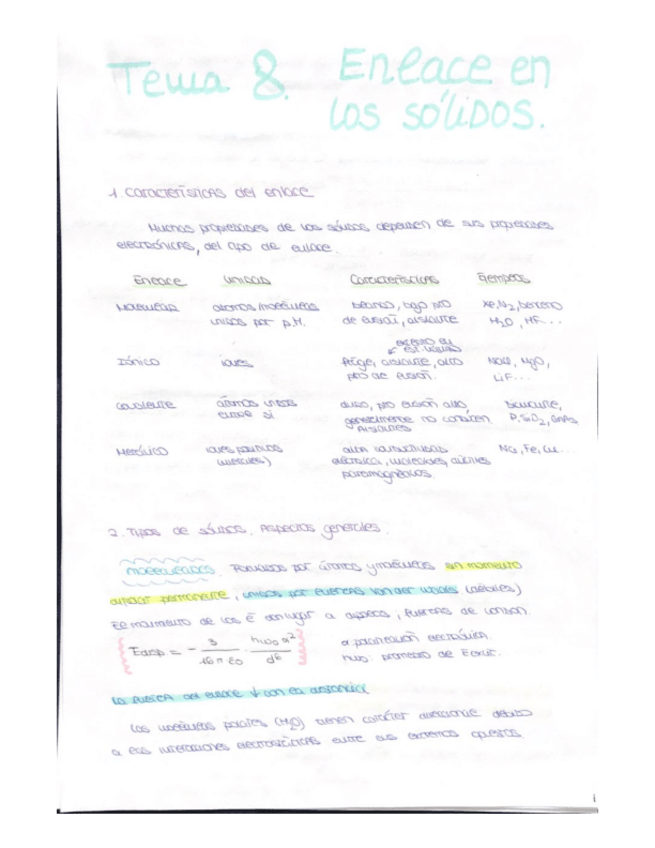 Tema 8. Enlace en
los sólidos.
1. Características del enlace
Muchas propiedades de los sólidos dependen de sus propiedades
electrónicas, del tipo de enlace.
Enlace Unidad Características Ejemplos
Molecular átomos/moléculas blando, bajo pto Xe, N₂, benceno
unidos por p.H. de fusión, aislante H₂O, HF...
excepto en
est. líquido
Iónico iones frágil, aislante, alto NaCl, MgO,
pto de fusión. LiF...
Covalente átomos unidos duro, pto fusión alto, Diamante,
entre sí generalmente no conducen P, SiO₂, GaAs
Aislantes
Metálico iones positivos alta conductividad Na, Fe, Cu...
(metales) eléctrica, maleables, dúctiles
paramagnéticos.
2. Tipos de sólidos. Aspectos generales.
MOLECULARES. Formados por átomos y moléculas sin momento
dipolar permanente, unidos por fuerzas Van der Waals (débiles)
El momento de los e⁻ dan lugar a dipolos, fuerzas de London.
Edisp = - 3 / 16 π ε0 · hω₀ α² / d⁶
α polarización electrónica.
hω₀ promedio de
La fuerza del enlace ↓ con la distancia
Las moléculas polares (H₂O) tienen carácter debido
a las interacciones electrostáticas entre sus extremos opuestos.
1